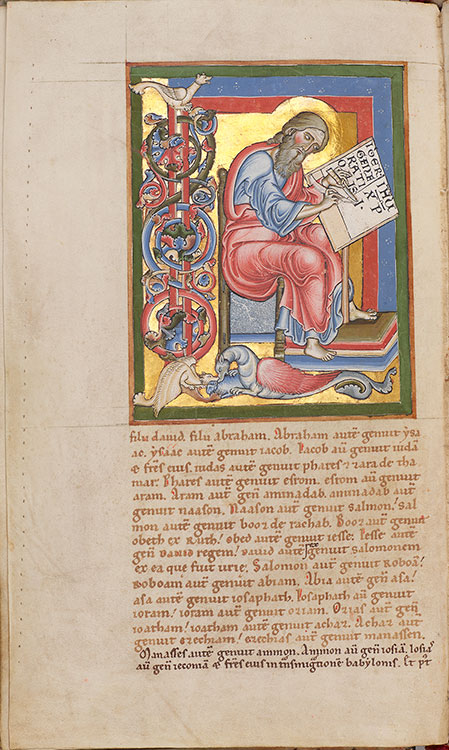 LIBER
GENE
RATI
O
IS I
IHU
XP
filii david. filii abraham. Abraham autē genuit ysa
ac. ysaac autē genuit iacob. Iacob aū genuit iudā
& frēs eius. iudas autē genuit phares & zara de tha
mar. Phares autē genuit esrom. esrom aū genuit
aram. Aram autē geñ aminadab. aminadab autē
genuit naason. Naason autē genuit salmon. sal
mon autē genuit booz de rachab. Booz autē genuit
obeth ex Ruth. obed autē genuit iesse. Iesse autē
geñ DAVID regem. david autē rex genuit salomonem
ex ea que fuit urie. Salomon autē genuit Roboā.
Roboam autē genuit abiam. Abia autē geñ asa.
asa autē genuit iosaphath. Iosaphath aū genuit
ioram. ioram autē genuit oziam. Ozias autē geñ
ioatham. ioatham autē genuit achaz. Achaz autē
genuit ezechiam. ezechias autē genuit manassen.
Manasses autē genuit ammon. Ammon aū geñ iosiā. Iosias
aū geñ ieconiā & frēs eius in transmigratione babylonis. Et pꝰt